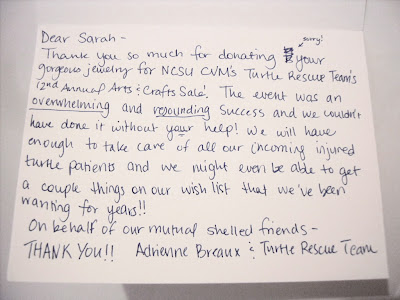 Dear Sarah -
sorry!
Thank you so much for donating your
gorgeous jewelry for NCSU CVM's Turtle Rescue Team's
12nd Annual Arts & Crafts Sale! The event was an
overwhelming and resounding success and we couldn't
have done it without your help! We will have
enough to take care of all our incoming injured
turtle patients and we might even be able to get
a couple things on our wish list that we've been
wanting for years!!
On behalf of our mutual shelled friends -
THANK YOU!! Adrienne Breaux & Turtle Rescue Team